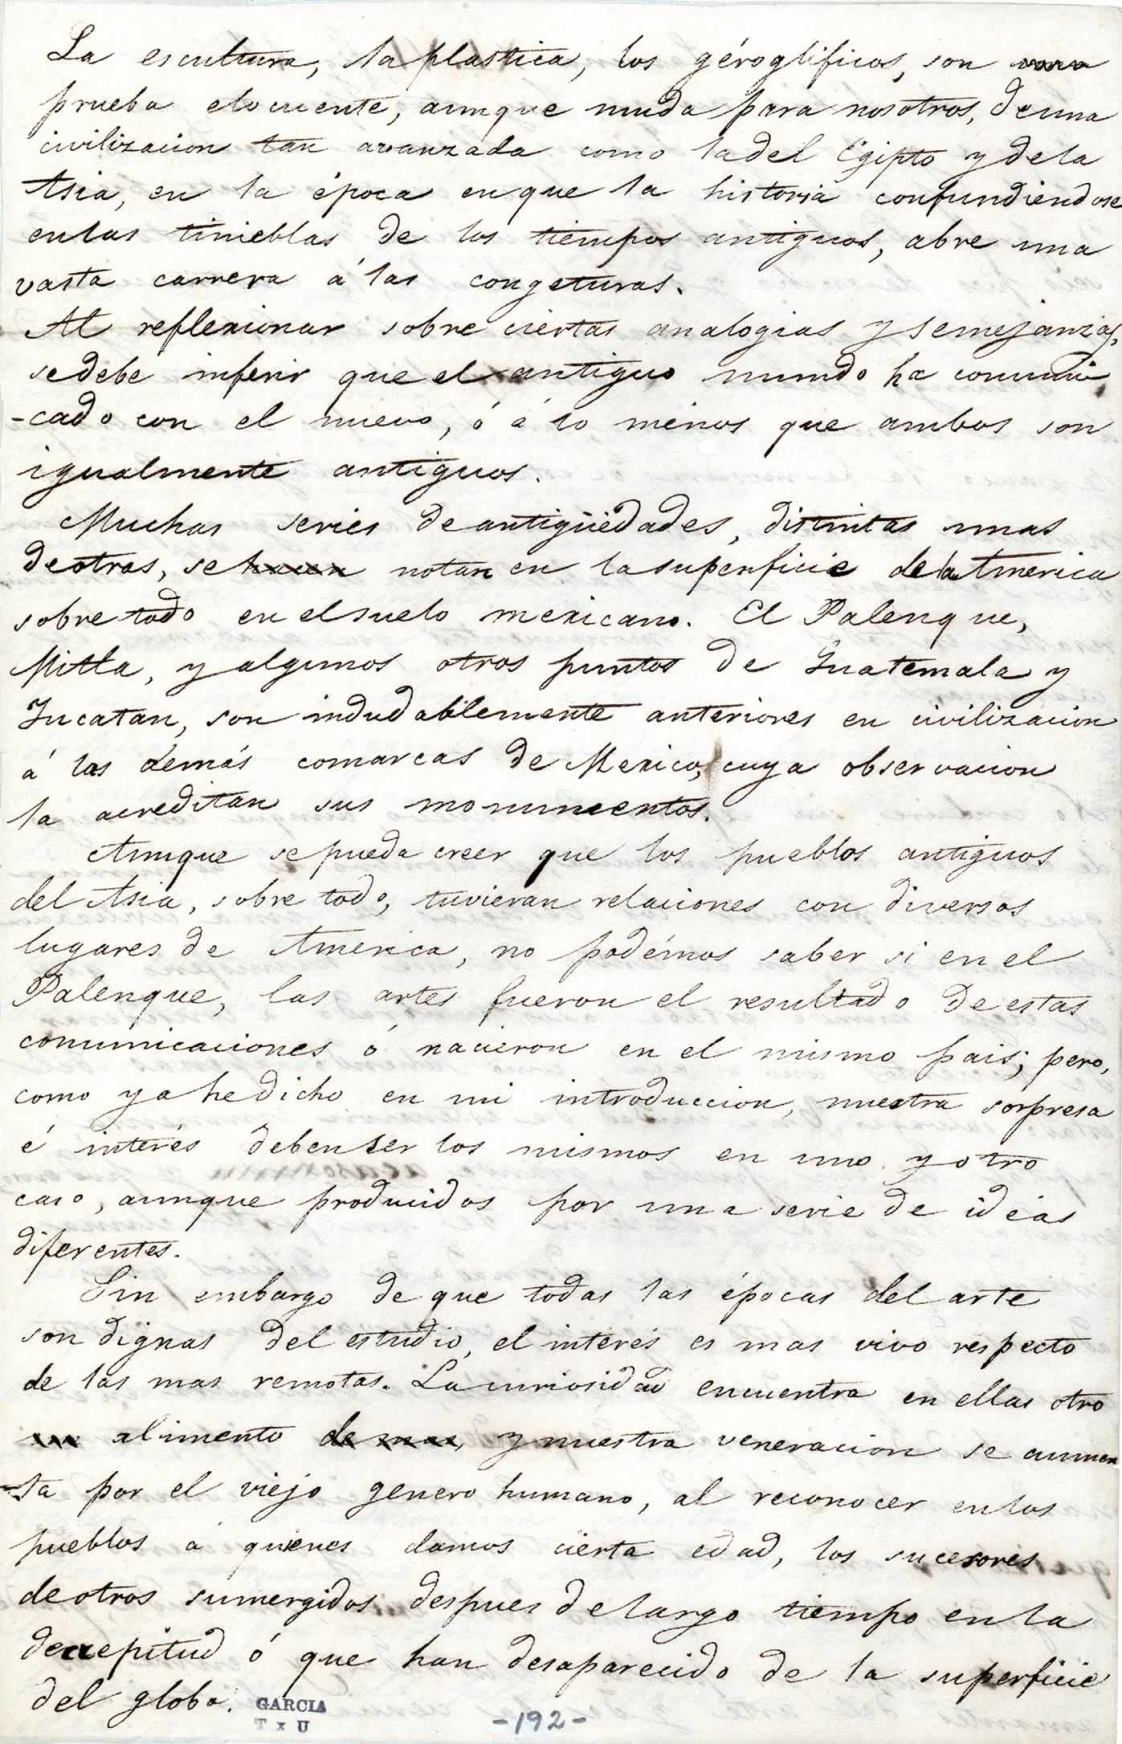 La escultura, la plastica, los géroglificos, son una
prueba elocuente, aunque muda para nosotros, de una
civilizacion tan avanzada como la del Egipto y de la
Asia, en la época en que la historia confundiendose
en las tinieblas de los tiempos antiguos, abre una
vasta carrera á las congeturas.
Al reflexionar sobre ciertas analogias y semejanzas,
se debe inferir que el antiguo mundo ha comuni
-cado con el nuevo, ó á lo ménos que ambos son
igualmente antiguos.
Muchas series de antigüedades, distintas unas
de otras, se notan en la superficie de la America
sobre todo en el suelo mexicano. El Palenque,
Mitla, y algunos otros puntos de Guatemala y
Yucatan, son indudablemente anteriores en civilizacion
á las demás comarcas de Mexico, cuya observacion
la acreditan sus monumentos.
Aunque se pueda creer que los pueblos antiguos
del Asia, sobre todo, tuvieran relaciones con diversos
lugares de America, no podémos saber si en el
Palenque, las artes fueron el resultado de estas
comunicaciones ó nacieron en el mismo pais; pero,
como ya he dicho en mi introduccion, nuestra sorpresa
é interés deben ser los mismos en uno y otro
caso, aunque producidos por una serie de idéas
diferentes.
Sin embargo de que todas las épocas del arte
son dignas del estudio, el interés es mas vivo respecto
de las mas remotas. La curiosidad encuentra en ellas otro
alimento y nuestra veneracion se aumen
-ta por el viejo genero humano, al reconocer en los
pueblos á quienes damos cierta edad, los sucesores
de otros sumergidos despues de largo tiempo en la
decrepitud ó que han desaparecido de la superficie
del globo.
GARCIA
T x U
-192-